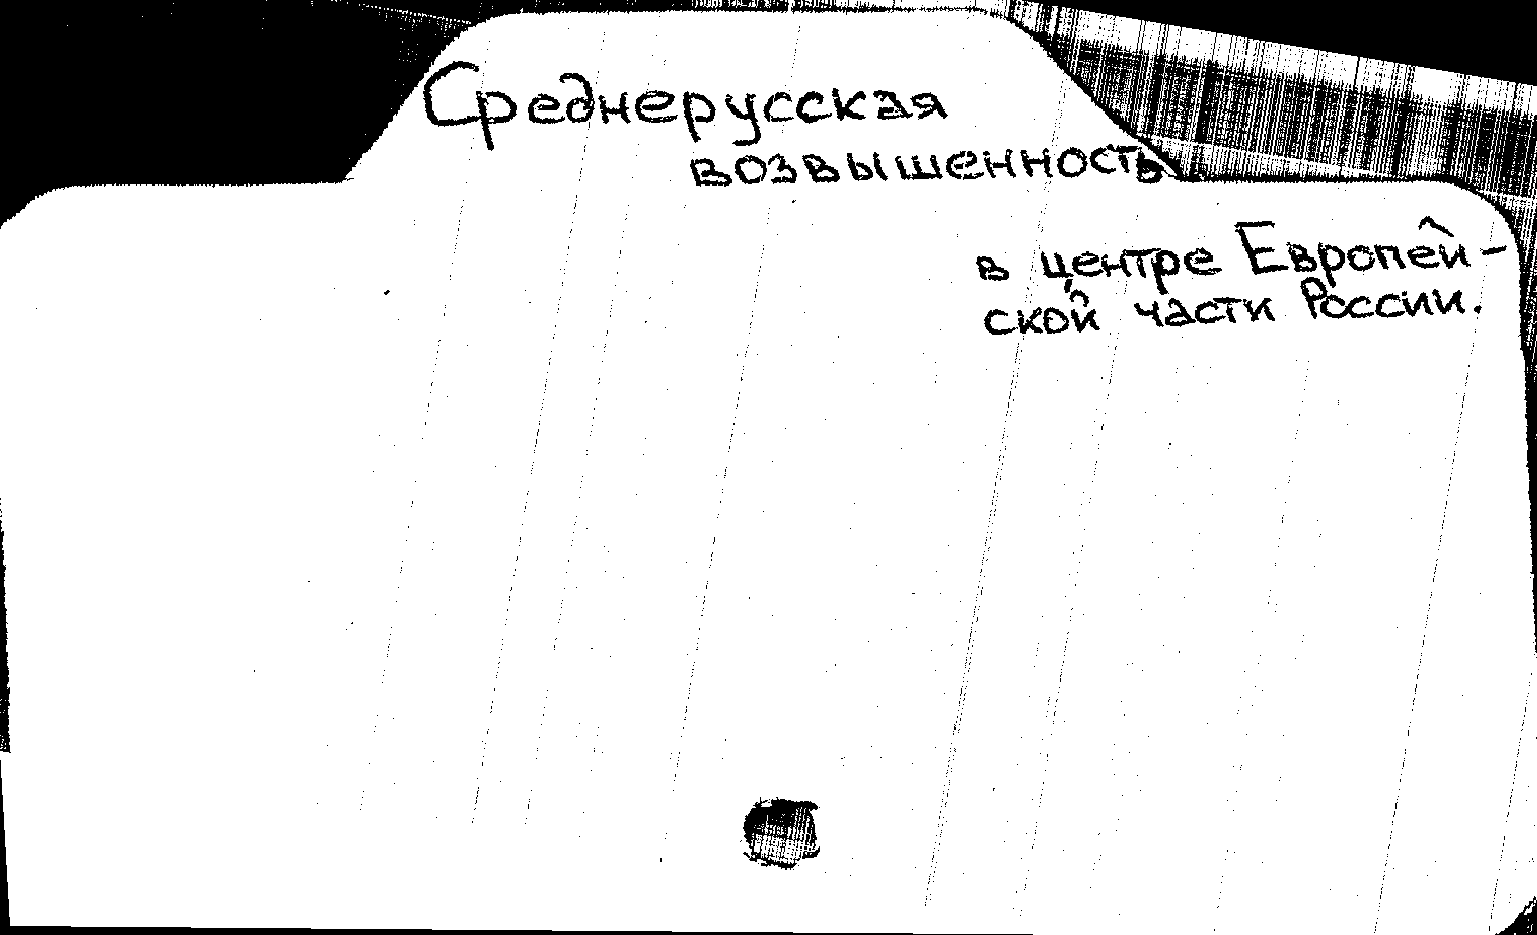 Среднерусская
возвышенность
в центре Европей-
ской части России.